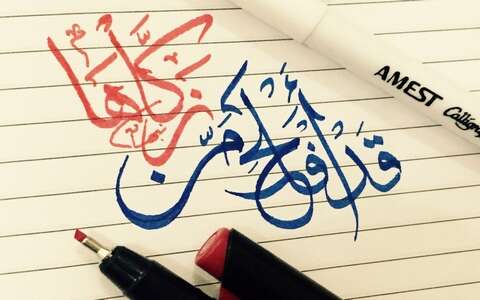 قَدْ أَفْلَحَ مَنْ
زَكَّاهَا
AMEST Calligr